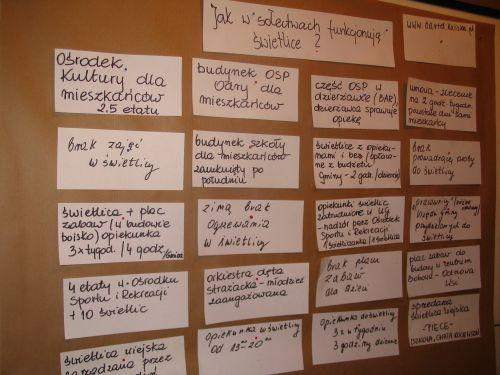 Jak w sołectwach funkcjonują
świetlice ?
Ośrodek
Kultury dla
mieszkańców
2.5 etatu
budynek OSP
Odny dla
mieszkańców
część OSP w
dzierżawce (BAR),
dzierżawca sprawuje
opiekę
umowa - zlecenie
na 2 godz. tygodn.
mieszkańcy
brak zajęć
w świetlicy
budynek szkoły
dla mieszkańców
zamknięty po
południu
świetlice z opieku-
nami i bez /opłaca-
ne z budżetu
Gminy - 2 godz /dziennie/
brak
prowadzącej osoby
do świetlicy
świetlica + plac
zabaw / w budowie
boisko / opiekunka
3 x tygod. / 4 godz.
zimą brak
ogrzewania
w świetlicy
opiekunki świetlic
zatrudnione w UG
- nadzór przez Ośrodek
Sportu i Rekreacji
do świetlicy
4 etaty 4 - Ośrodku
Sportu i Rekreacji
+ 10 świetlic
orkiestra dęta
strażacka - młodzież
zaangażowana
brak planu
zabaw
dla dzieci
plac zabaw do
budowy w centrum
wsi
świetlica wiejska
zarządzana przez
opiekunka w świetlicy
od 15⁰⁰ 20⁰⁰
opiekunka do świetlicy
3 x w tygodniu
3 godziny dziennie
sprzedana
świetlica wiejska